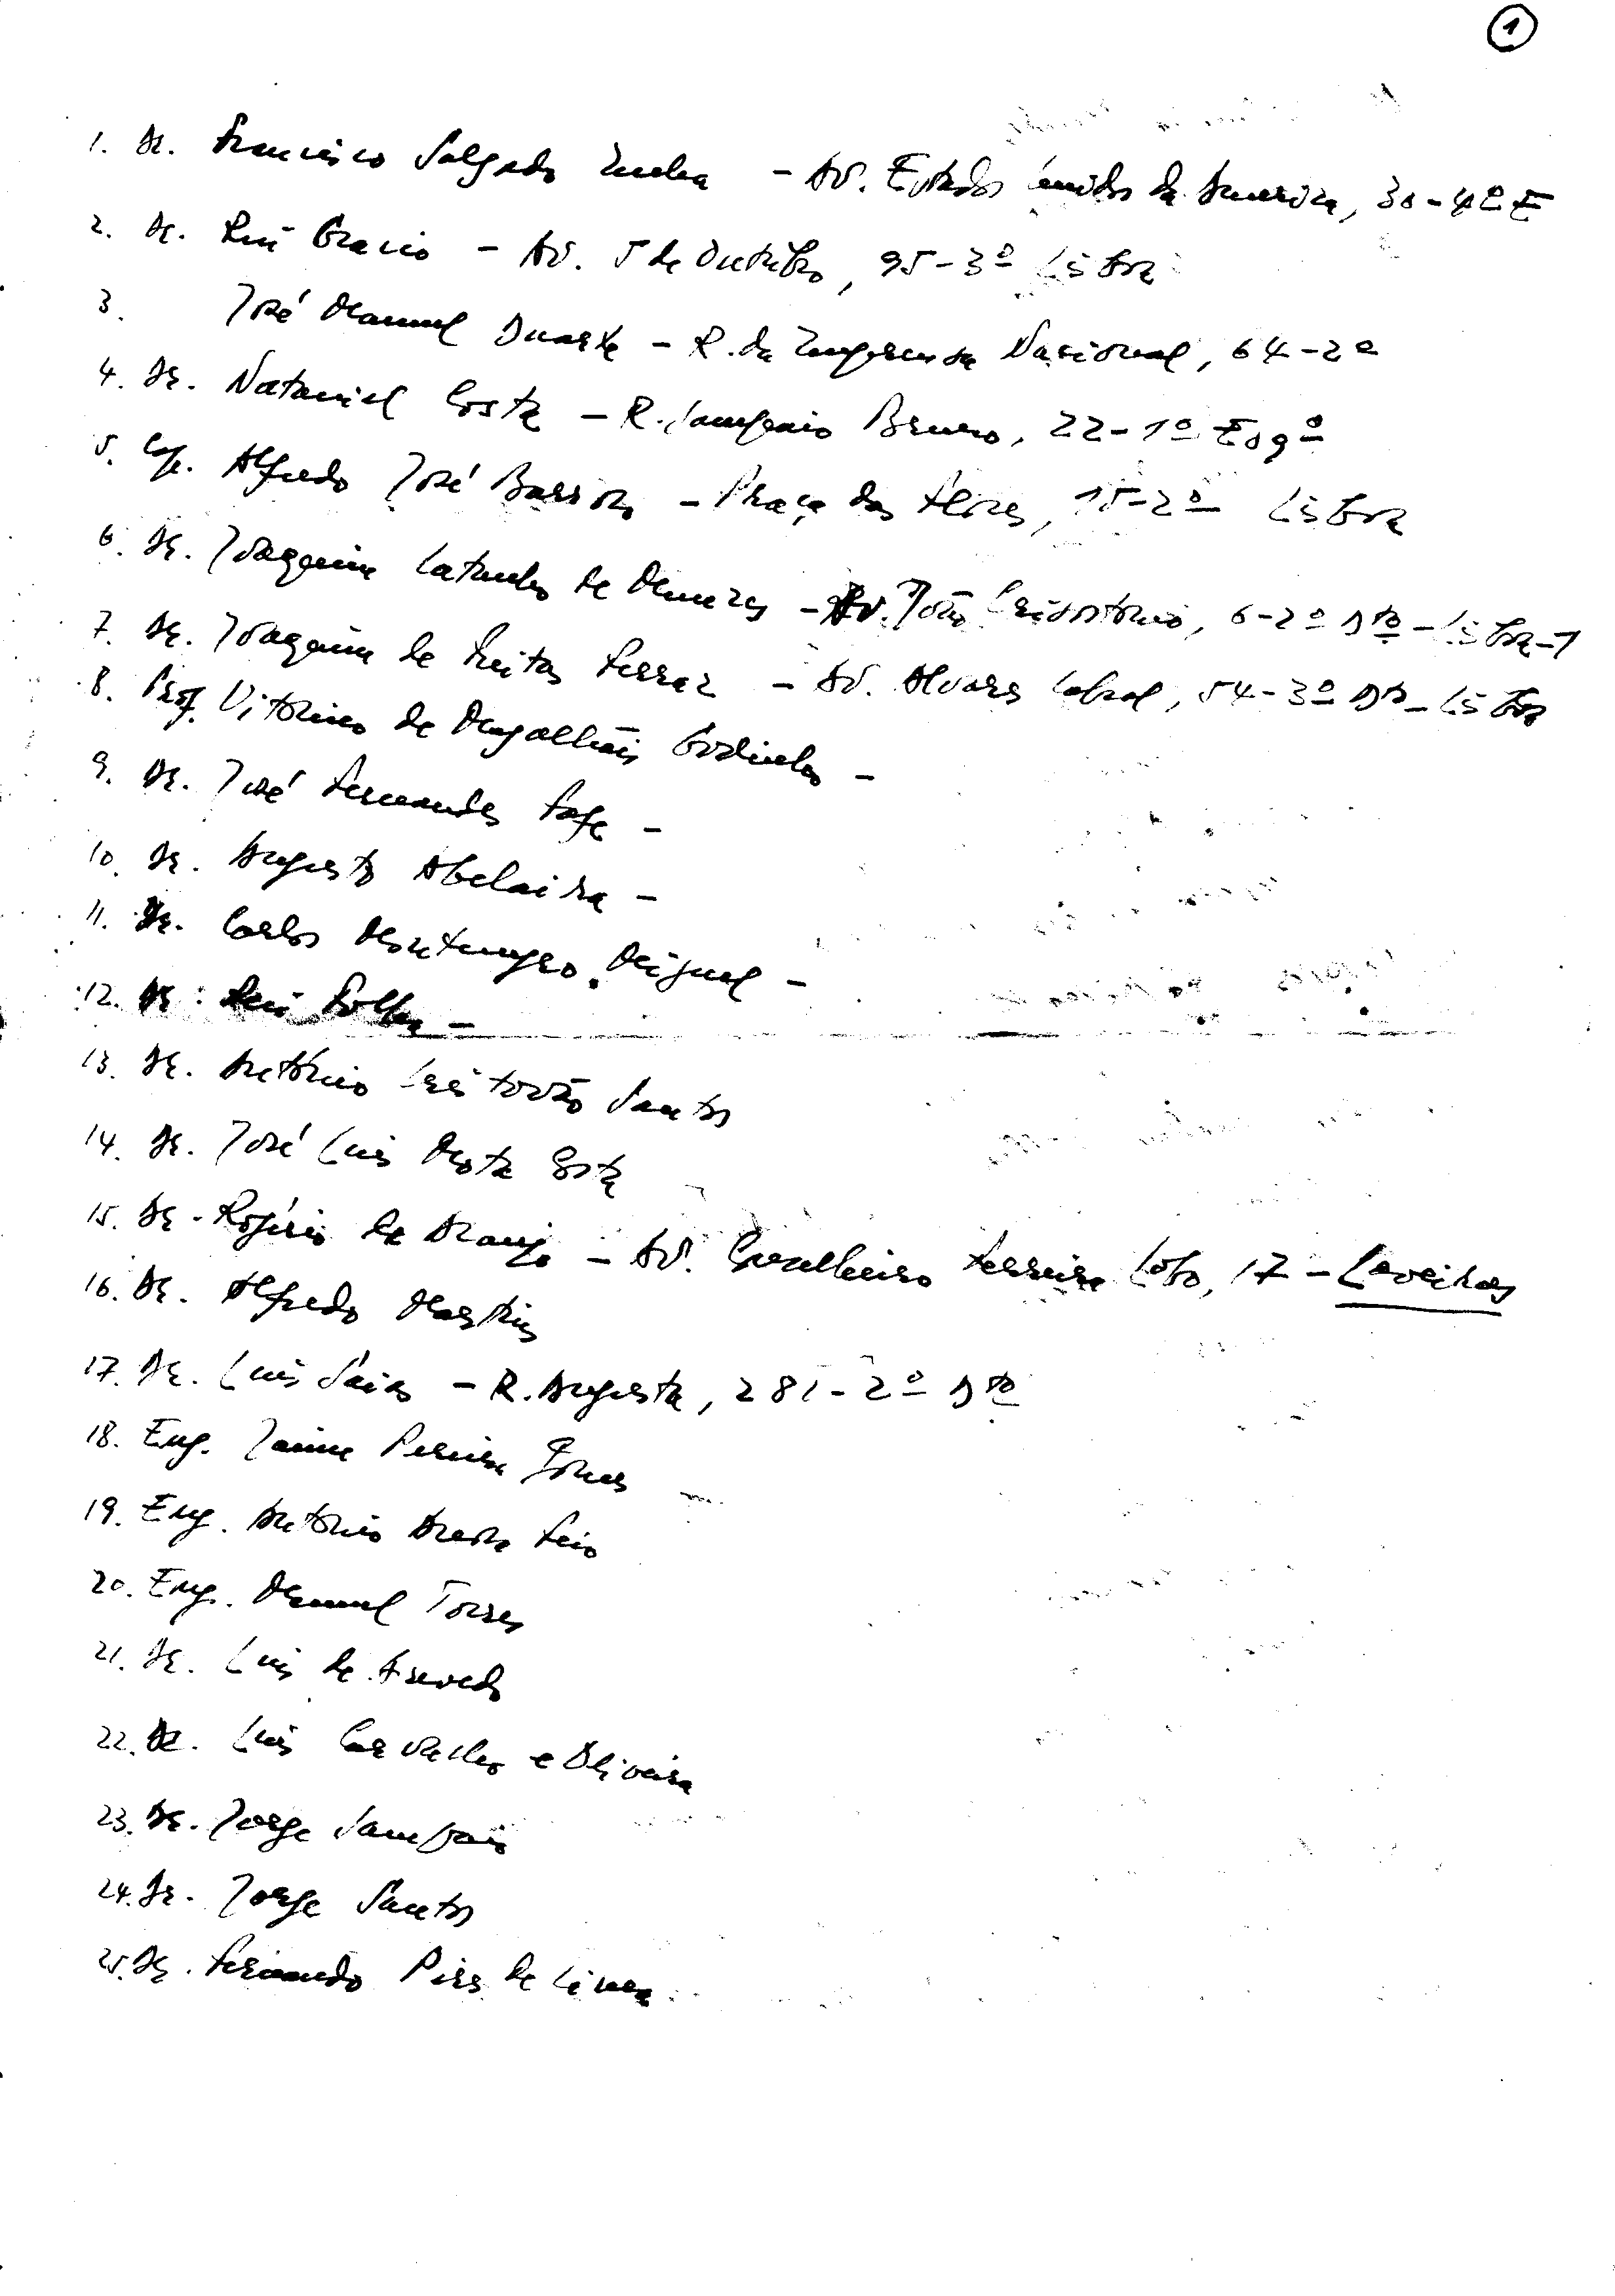 1
1. Dr. Francisco Salgado Zenha - Av. Estados Unidos da America, 30-4º E
2. Dr. Rui Grácio - Av. 5 de Outubro, 95-3º Lisboa
3. José Manuel Duarte - R. da Imprensa Nacional, 64-2º
4. Dr. Nataniel Costa - R. Sampaio Bruno, 22-1º Esqº
5. Alfredo José Barroso - Praça das Flores, 15-2º Lisboa
6. Dr. Joaquim Catanho de Menezes - Av. João Crisóstomo, 6-2º Dtº - Lisboa-1
7. Dr. Joaquim de Freitas Ferraz - Av. Alvares Cabral, 54-3º Dtº - Lisboa
8. Prof. Vitorino de Magalhães Godinho -
9. Dr. José Fernandes Fafe -
10. Dr. Augusto Abelaira -
11. Dr. Carlos Montenegro Miguel -
12. Dr.
13. Dr. António Cristovão Santos
14. Dr. José Luis Mota Costa
15. Dr. Rogério de Araujo - Av. Conselheiro Ferreira Lobo, 17 - Caveiras
16. Dr. Alfredo Martins
17. Dr. Luis Sáias - R. Augusta, 281-2º Dtº
18. Eng. Jaime Pereira Gomes
19. Eng. António Feio
20. Eng. Manuel Torres
21. Dr. Luis de Azevedo
22. Dr. Luis Carvalho e Oliveira
23. Dr. Jorge Sampaio
24. Dr. Jorge Santos
25. Dr. Fernando Pires de Lima